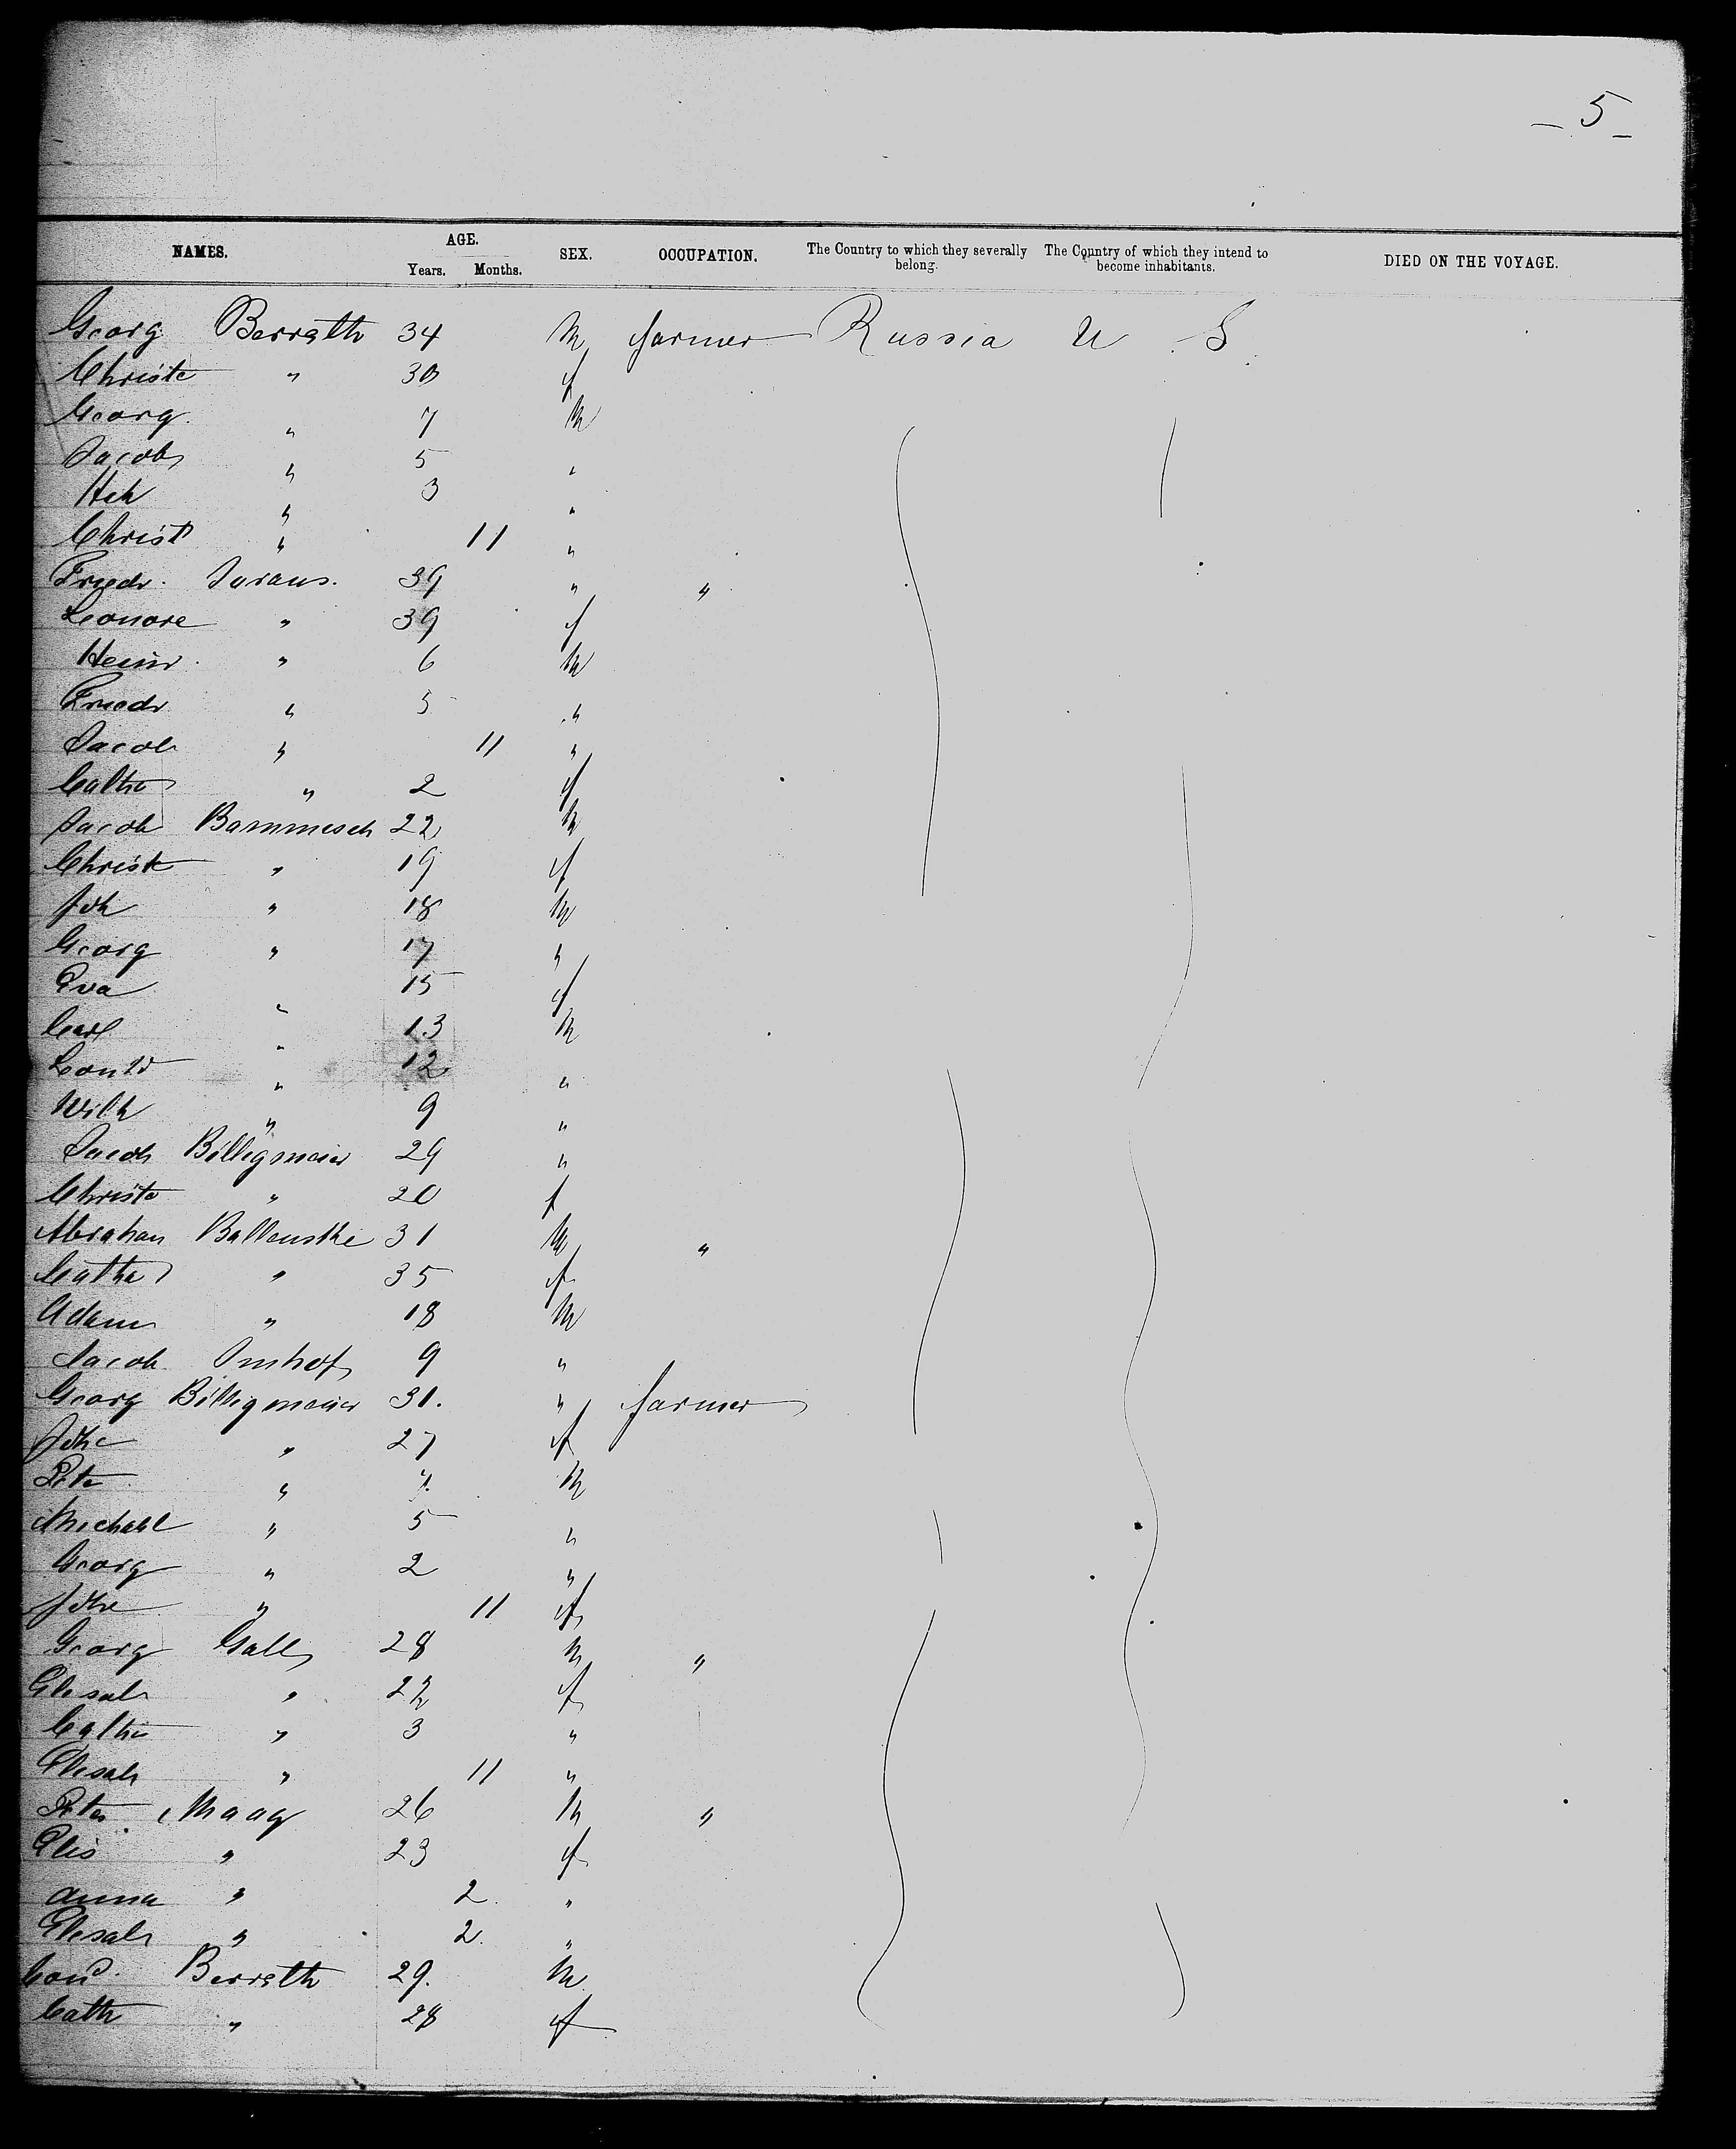 – 5 –
NAMES. AGE. SEX. OCCUPATION. The Country to which they severally belong. The Country of which they intend to become inhabitants. DIED ON THE VOYAGE.
Years. Months.
Georg Berrath 34 M farmer Russia U S
Christe " 30 f
Georg " 7 M
Jacob " 5 "
Hch " 3 "
Christ " 11 "
Friedr. 39 " "
Leonore " 39 f
Heinr. " 6 M
Friedr " 5 "
Jacob " 11 "
Cathe " 2 f
Jacob Bammesch 22 M
Christe " 19 f
Joh " 18 M
Georg " 17 "
Eva " 15 f
Carl " 13 M
" 12 "
Wilh " 9 "
Jacob Billigmeier 29 "
Christe " 20 f
Abraham Ballenskie 31 M "
Catha " 35 f
Adam " 18 M
Jacob Imhof 9 "
Georg Billigmeier 31. " farmer
Johe " 27 f
Peter " 7. M
Michael " 5 "
Georg " 2 "
Johe " 11 f
Georg Gall 28 M "
Elisab " 22 f
Cathe " 3 "
Elisab " 11 "
Peter Maag 26 M "
Elis " 23 f
Anna " 2 "
Elisab " 2. "
Conr. Berrath 29. M
Cath " 28 f